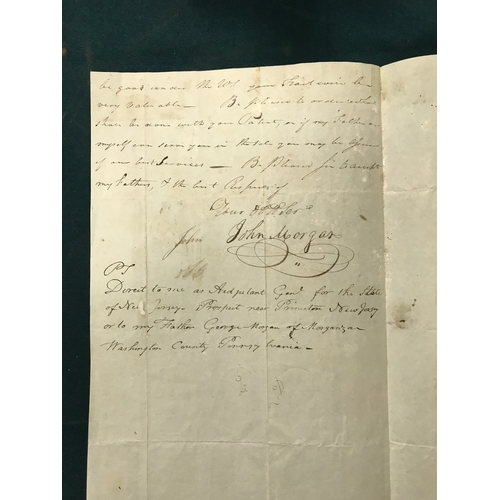 be good under the W your Land will be
very valuable — Be pleased to order what
shall be done with your Patent, or if my Father or
myself can serve you in the sale you may be sure
of our best Services — Be Pleased Sir to accept
my Fathers, & the best Respects of
Your Ob Ser
John John Morgan
PS
Direct to me as Adjutant Genl for the State
of New Jersey Prospect near Princeton New Jersey
or to my Father George Morgan of Morganza
Washington County Pennsylvania —